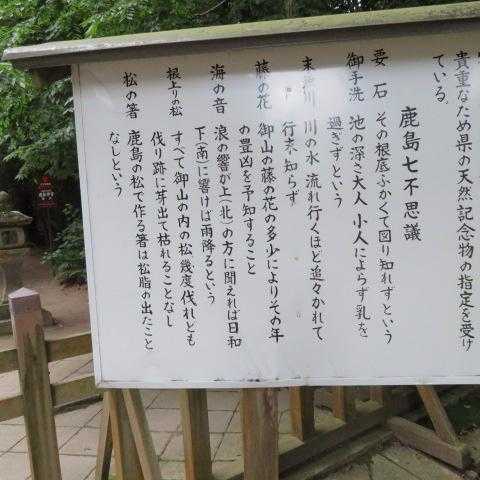 貴重なため県の天然記念物の指定を受け
ている。
鹿島七不思議
要石 その根底ふかくて図り知れずという
御手洗 池の深さ大人小人によらず乳を
過ぎずという
末無川 川の水 流れ行くほど追々かれて
行末知らず
藤の花 御山の藤の花の多少によりその年
の豊凶を予知すること
海の音 浪の響が上(北)の方に聞えれば日和
下(南)に響けば雨降るという
根上りの松 すべて御山の内の松幾度伐れとも
伐り跡に芽出て枯れることなし
松の箸 鹿島の松で作る箸は松脂の出たこと
なしという